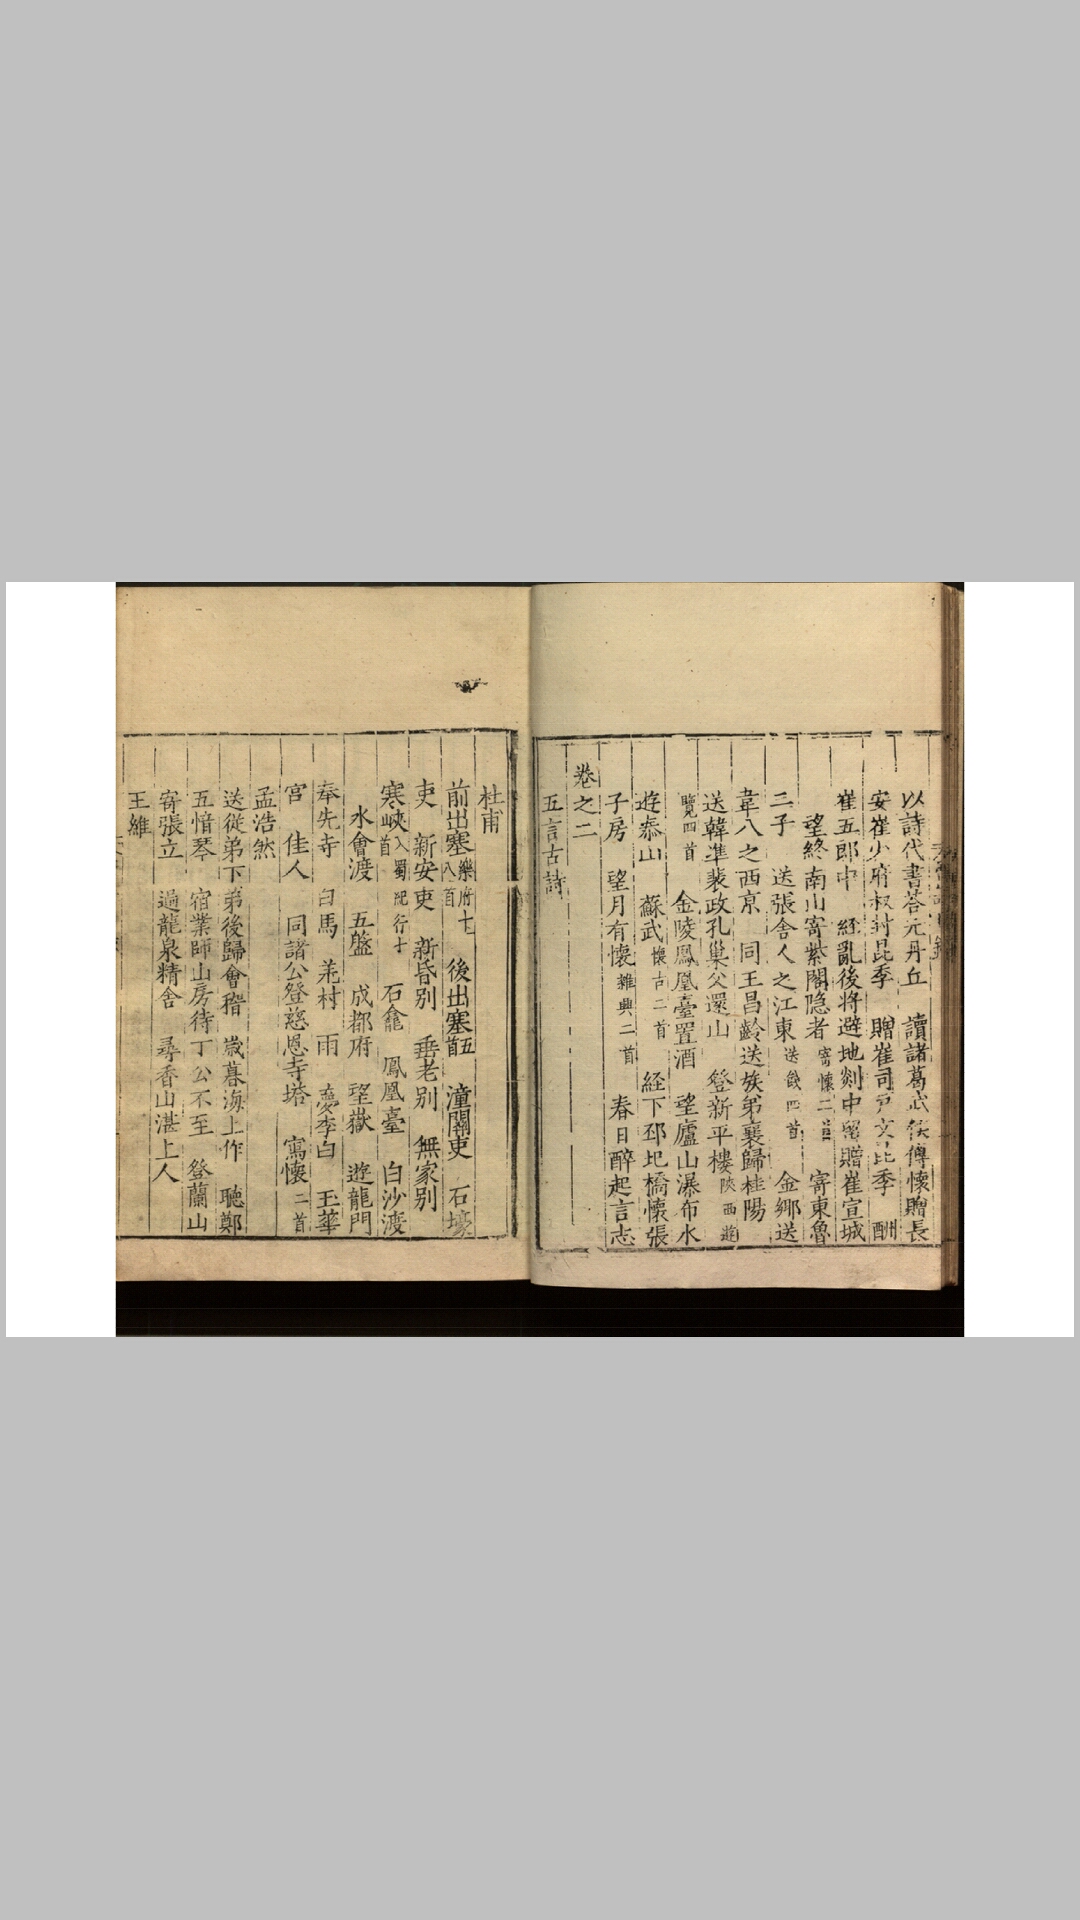 以詩代書荅元丹丘 讀諸葛武侯傳懷贈長
安崔少府叔封昆季 贈崔司戶文昆季 酬
崔五郎中 経亂後将避地剡中留贈崔宣城
望終南山寄紫閣隐者 寄懷二首 寄東魯
二子 送張舍人之江東 送餞四首 金鄉送
韋八之西京 同王昌齡送族弟襄歸桂陽
送韓準裴政孔巢父還山 登新平樓 陝西遊
覽四首 金陵鳳凰臺置酒 望廬山瀑布水
遊泰山 蘇武 懷古二首 経下邳圯橋懷張
子房 望月有懷 雜興二首 春日醉起言志
卷之二
五言古詩
杜甫
前出塞 樂府七八首 後出塞 五首 潼關吏 石壕
吏 新安吏 新昏别 垂老别 無家别
寒峽 入蜀紀行十首 石龕 鳳凰臺 白沙渡
水會渡 五盤 成都府 望嶽 遊龍門
奉先寺 白馬 羌村 雨 夢李白 玉華
宮 佳人 同諸公登慈恩寺塔 寓懷 二首
孟浩然
送從弟下第後歸會稽 歲暮海上作 聽鄭
五愔琴 宿業師山房待丁公不至 登蘭山
寄張立 過龍泉精舍 尋香山湛上人
王維